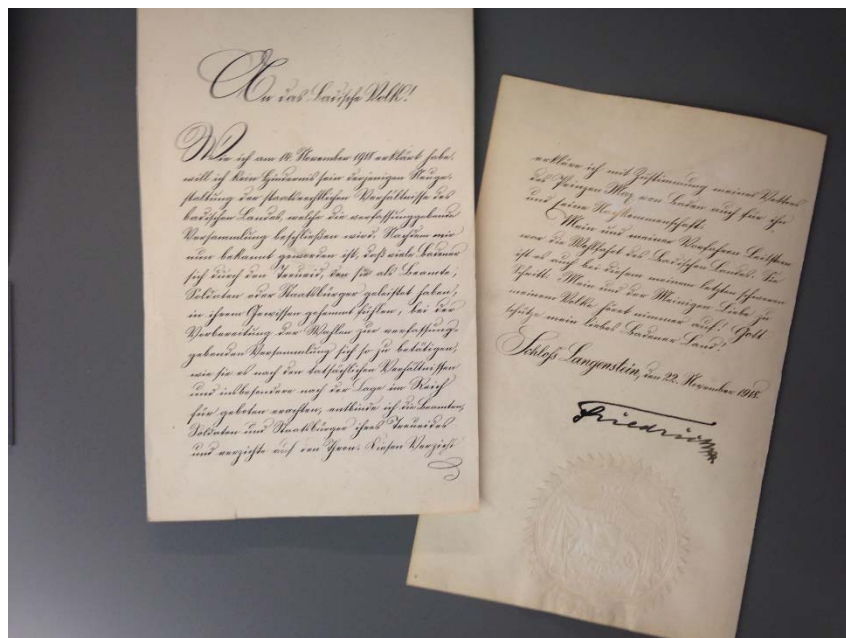 An das Badische Volk!
Wie ich am 14. November 1918 erklärt habe,
will ich kein Hindernis sein derjenigen Neuge-
staltung der staatsrechtlichen Verhältnisse des
badischen Landes, welche die verfassunggebende
Versammlung beschließen wird. Nachdem mir
nun bekannt geworden ist, daß viele Badener
sich durch den Treueid, den sie als Beamte,
Soldaten oder Staatsbürger geleistet haben,
in ihrem Gewissen gehemmt fühlen, bei der
Vorbereitung der Wahlen zur verfassung-
gebenden Versammlung sich so zu betätigen,
wie sie es nach den tatsächlichen Verhältnissen
und insbesondere nach der Lage im Reich
für geboten erachten, entbinde ich die Beamten,
Soldaten und Staatsbürger ihres Treueides
und verzichte auf den Thron. Diesen Verzicht
erkläre ich mit Zustimmung meines Vetters
des Prinzen Max von Baden auch für ihn
und seine Nachkommenschaft.
Mein und meiner Vorfahren Leitstern
war die Wohlfahrt des Badischen Landes. Sie
ist es auch bei diesem meinem letzten schweren
Schritt. Mein und der Meinigen Liebe zu
meinem Volke höret nimmer auf! Gott
schütze mein liebes Badener Land!
Schloß Langenstein, den 22. November 1918.
Friedrich